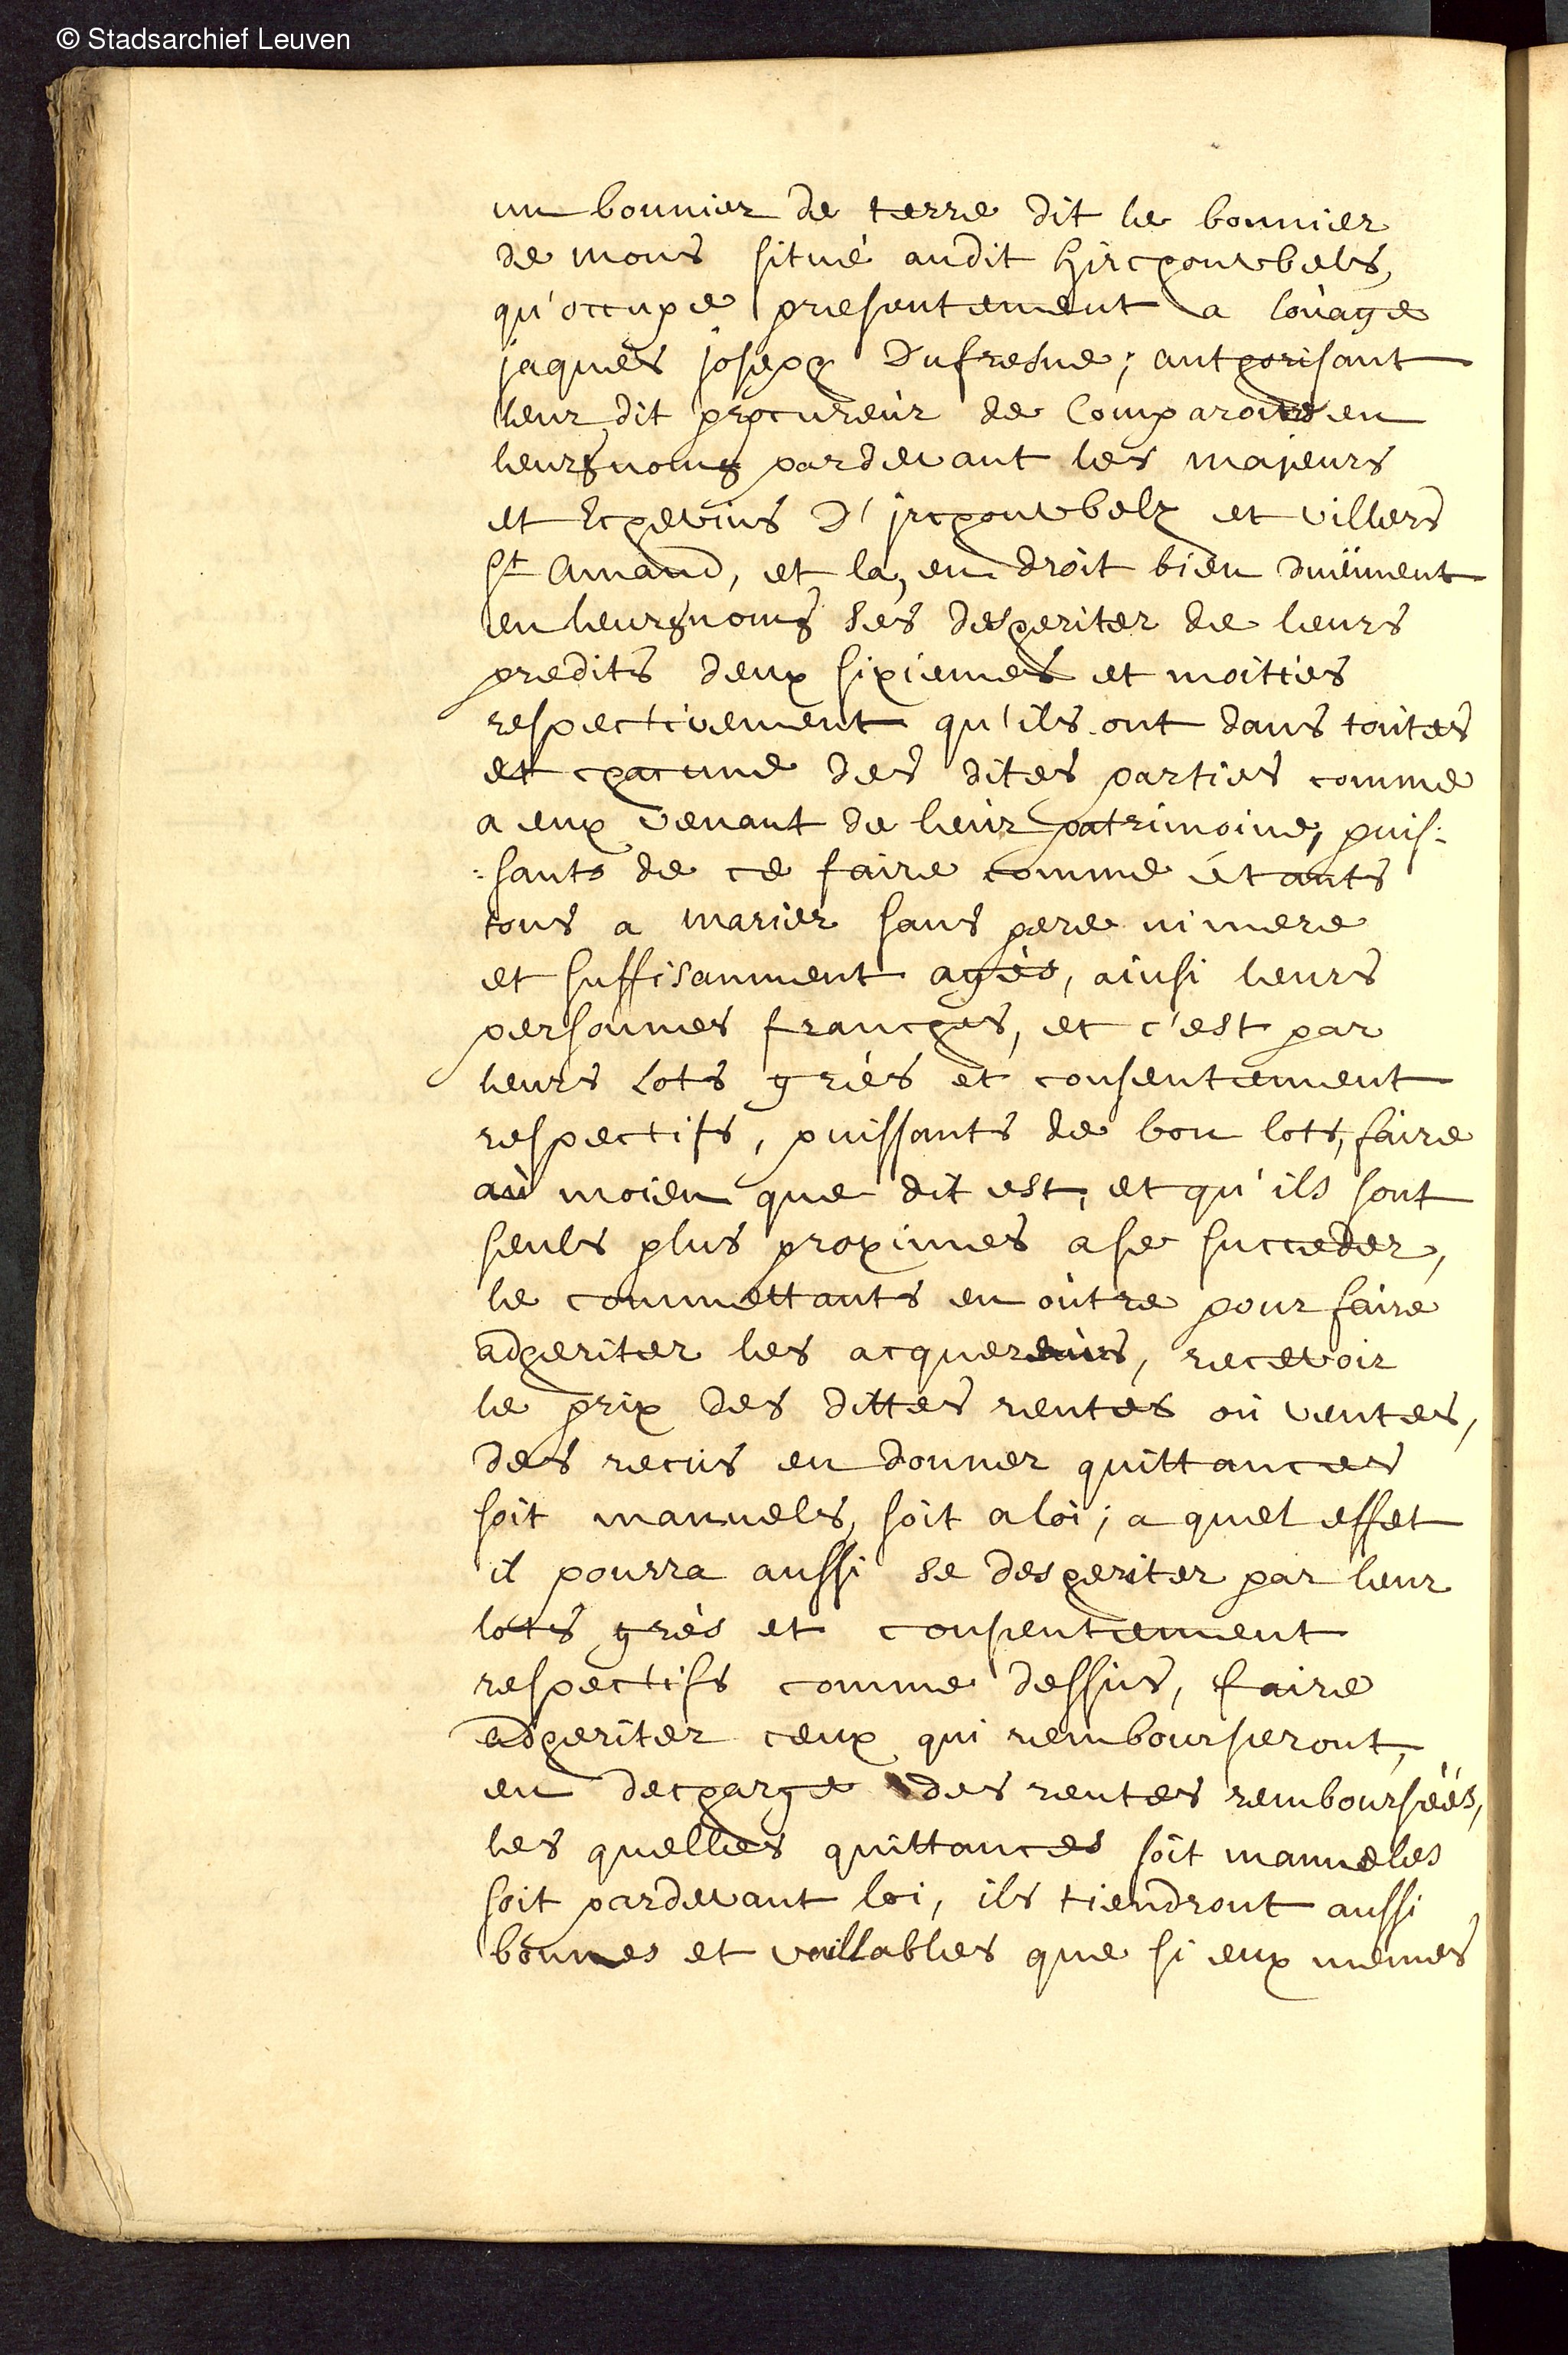 © Stadsarchief Leuven
un bonnier de terre dit le bonnier
de mons situé audit hirchonwbels,
qu'occupe presentement a loüage
jaques joseph Dufresne; authorisant
leur dit procureur de Comparoitre en
leurs noms pardevant les majeurs
et Echevins D'jrchonwbelz et villers
St Amand, et la, en droit bien duëment
en leurs noms ses desheriter de leurs
predits deux sixiemes et moitties
respectivement qu'ils ont dans toutes
et chacune des dites parties comme
a eux venant de leur patrimoine, puis:
:sants de ce faire comme étants
tous a marier sans pere ni mere
et suffisamment agés, ainsi leurs
personnes franches, et c'est par
leurs lots griés et consentement
respectifs, puissants de bon lots, faire
au moien que dit est, et qu'ils sont
seuls plus proximes a se succeder,
le commettants en outre pour faire
adheriter les acquereurs, recevoir
le prix des dittes rentes ou ventes,
des recus en donner quittances
soit manuels, soit a loi; a quel effet
il pourra aussi se desheriter par leur
lots grés et consentement
respectifs comme dessus, faire
adheriter ceux qui rembourseront,
en decharge des rentes remboursées,
les quelles quittances soit manueles
soit pardevant loi, ils tiendront aussi
bonnes et vaillables que si eux memes